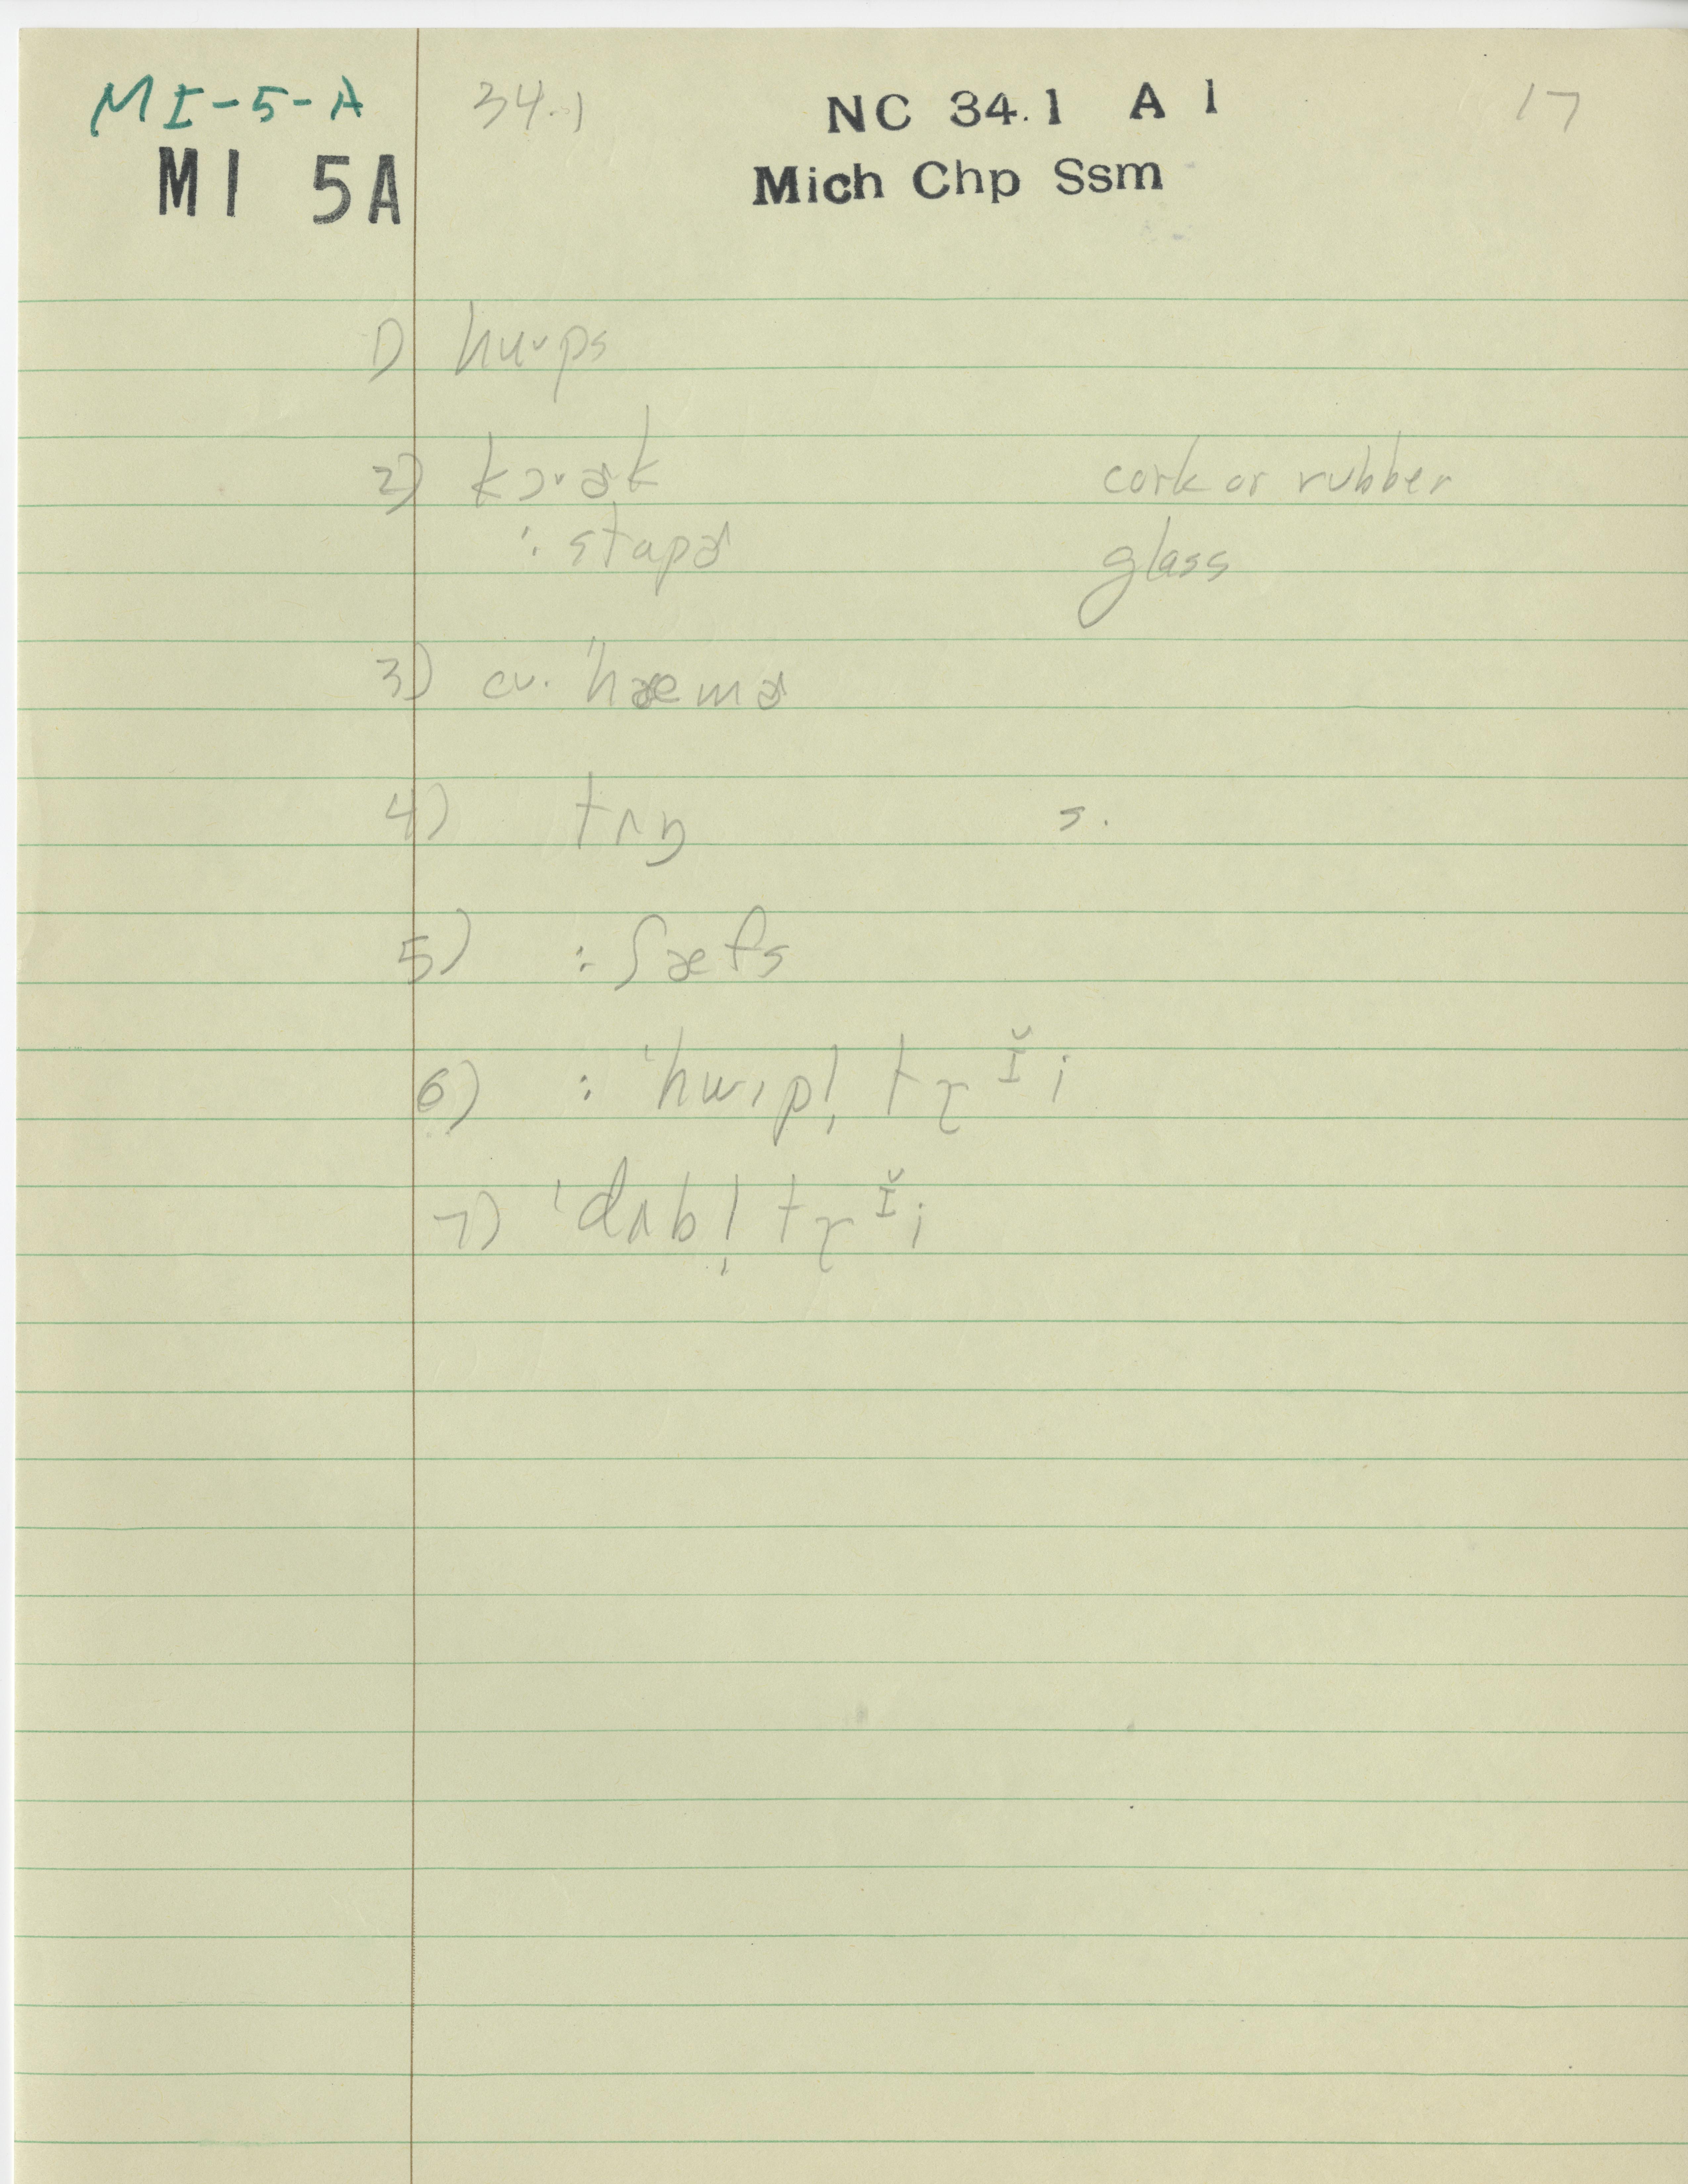 MI-5-A 34.1 NC 34.1 A 1 17
MI 5A Mich Chp Ssm
1) huˑps
2) kɔˑɚk cork or rubber
: stapɚ glass
3) a. ˈhæmɚ
4) tʌŋ s.
5) : ʃæfs
6) : ˈhwɪpl̩ tɹɪ̆i
7) ˈdʌbl̩ tɹɪ̆i